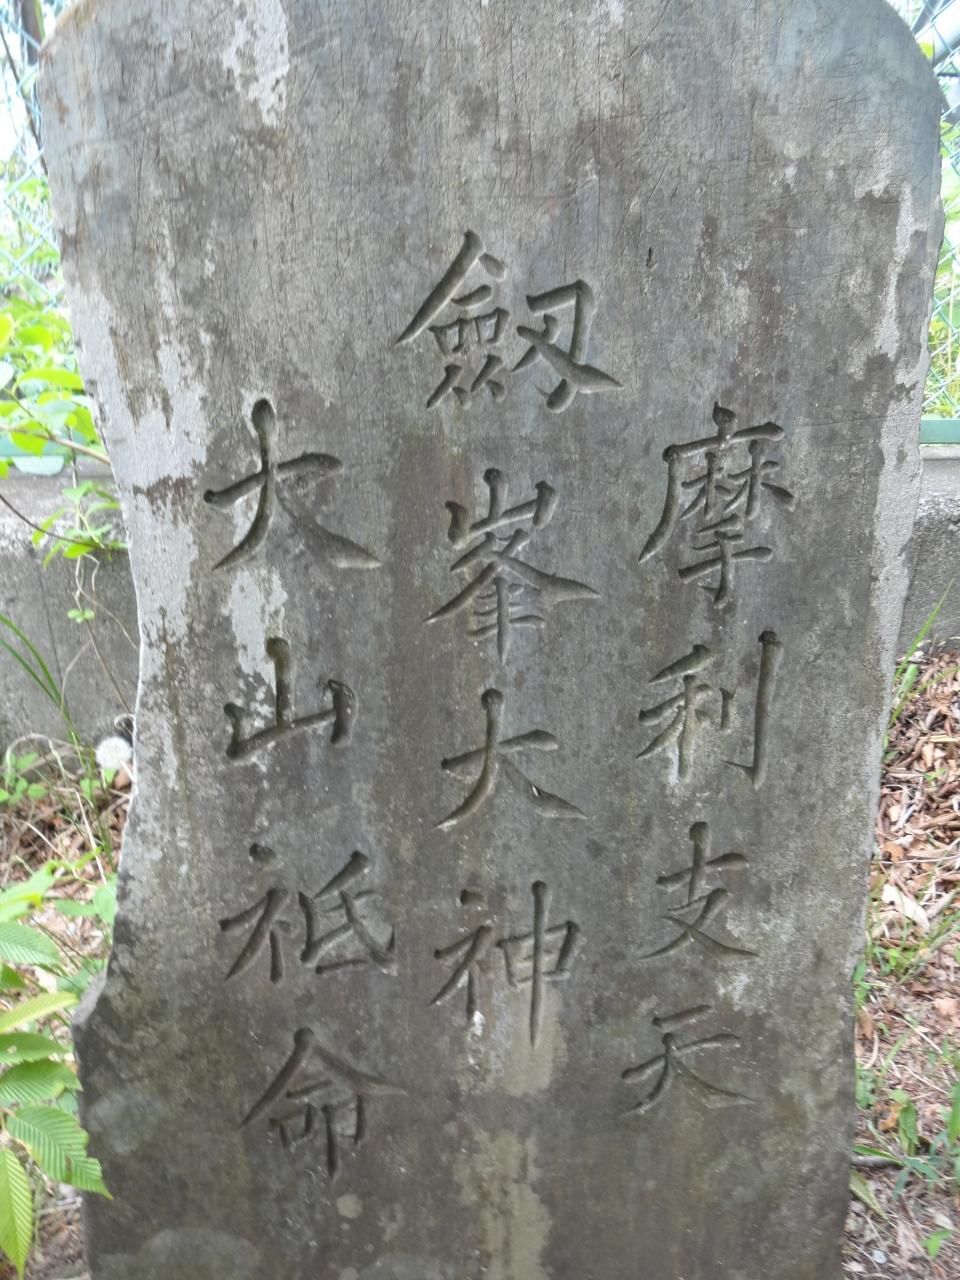 摩利支天
劔峯大神
大山祇命